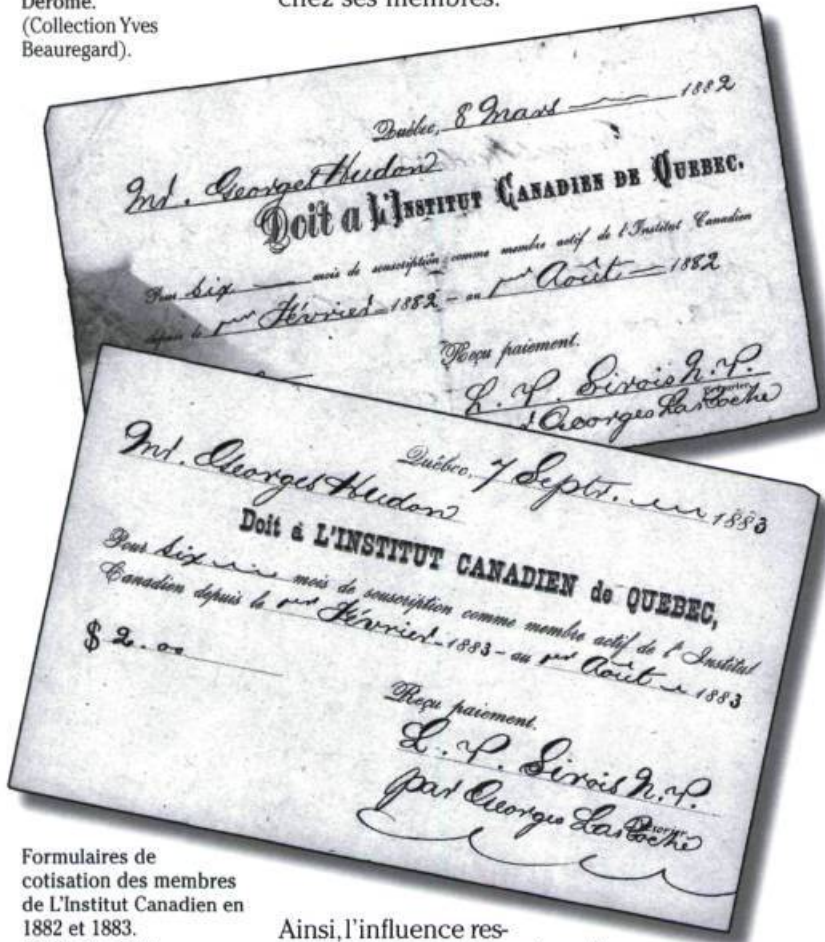 Derome.
(Collection Yves
Beauregard).
chez ses membres.
Québec, 8 Mars 1882
Mr. Georges Hudon
Doit a L'INSTITUT CANADIEN DE QUEBEC.
Pour Six mois de souscription comme membre actif de l'Institut Canadien
depuis le per Février 1882 - au per Août 1882
Reçu paiement.
L. P. Sirois N. P.
Georges LaRoche
Québec, 7 Septr. 1883
Mr. Georges Hudon
Doit à L'INSTITUT CANADIEN de QUEBEC,
Pour Six mois de souscription comme membre actif de l'Institut
Canadien depuis le per Février 1883 - au per Août 1883
$ 2.00
Reçu paiement.
L. P. Sirois N. P.
par Georges LaRoche
Formulaires de
cotisation des membres
de L'Institut Canadien en
1882 et 1883.
Ainsi, l'influence res-